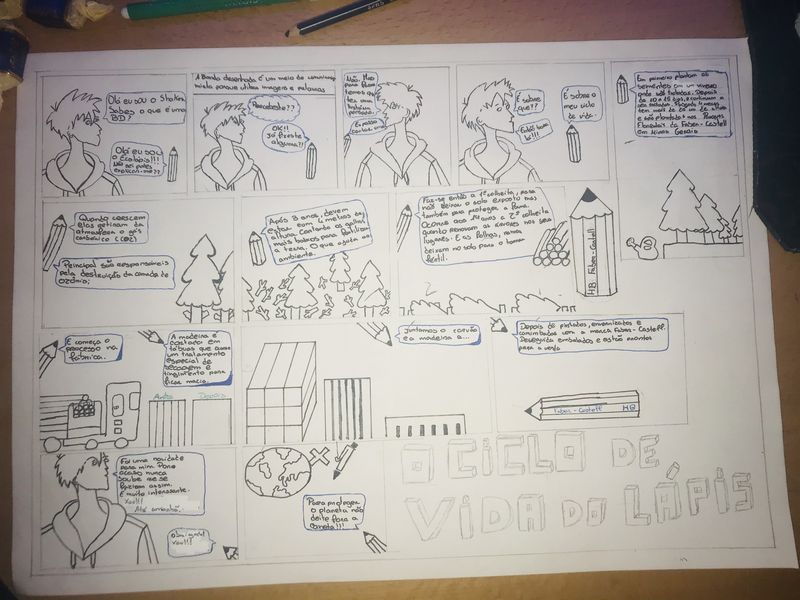 Olá eu sou o
Sabes o que é uma
BD?
Olá eu sou
o Ecolápis!!!
Não sei podes
explicar-me??
A Banda desenhada é um meio de comunicação
mista porque utiliza imagens e palavras
Percebeste??
OK!!
Já fizeste
alguma??
Não. Mas
para
temos que
ter uma
história
É sobre
que??
É sobre o
meu ciclo
de vida.
Em primeiro plantam as
sementes em um viveiro
onde são tratadas. Depois
de
e são plantados nos Parques
Florestais da Faber-Castell
em Minas Gerais
Quando crescem
elas retiram da
atmosfera o gás
carbónico (CO2)
Principal são responsáveis
pela destruição da camada de
ozônio;
Após 8 anos, devem
estar com 4 metros de
altura. Cortando os galhos
mais baixos para fertilizar
a terra. O que ajuda ao
ambiente.
Faz-se então a 1ª colheita, para
não deixar o solo exposto mas
também para proteger a flora.
Ocorre aos anos a 2ª colheita
quando removem as árvores nos seus
lugares. E as folhas,
deixam no solo para o tornar
fértil.
HB Faber-Castell
E começa o
processo na
fábrica..
A madeira é
cortada em
tábuas que
um tratamento
especial de
secagem e
tingimento para
ficar macio.
Antes
Depois
Juntamos o carvão
e a madeira a...
Depois de pintados, envernizados e
carimbados com a marca Faber-Castell.
Deseguida embalados e estão prontos
para a venda
Faber-Castell HB
Foi uma novidade
para mim
acaso nunca
soube
faziam assim.
É muito interessante.
Xau!!
Até amanhã.
Obrigado!
Xau!!
Para proteger
o planeta não
deite fora a
caneta!!!
O CICLO DE
VIDA DO LÁPIS